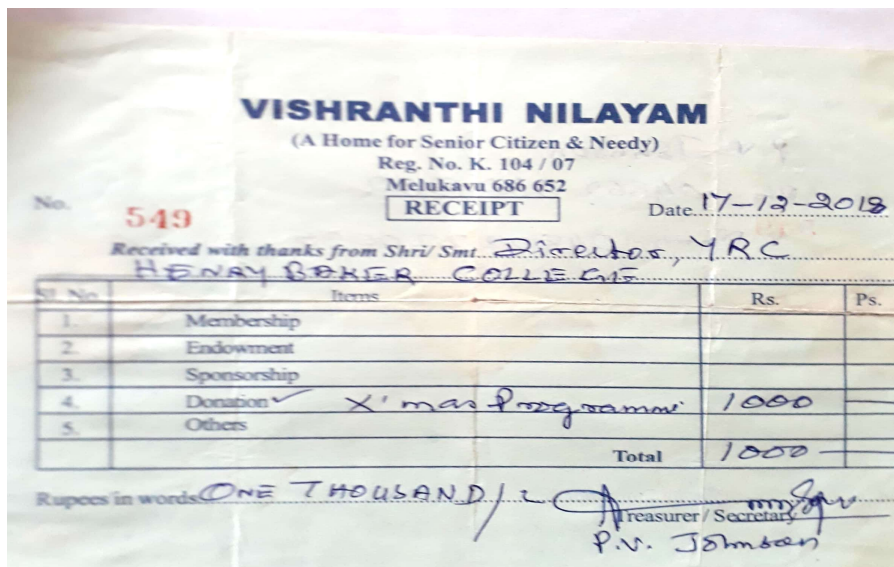 VISHRANTHI NILAYAM
(A Home for Senior Citizen & Needy)
Reg. No. K. 104 / 07
Melukavu 686 652
No. 549 RECEIPT Date 17-12-2018
Received with thanks from Shri/ Smt. Director, YRC
HENRY BAKER COLLEGE
Sl. No. Items Rs. Ps.
1. Membership
2. Endowment
3. Sponsorship
4. Donation ✓ X'mas Programme 1000 —
5. Others
Total 1000 —
Rupees in words ONE THOUSAND/-
Treasurer / Secretary
P.V. Johnson